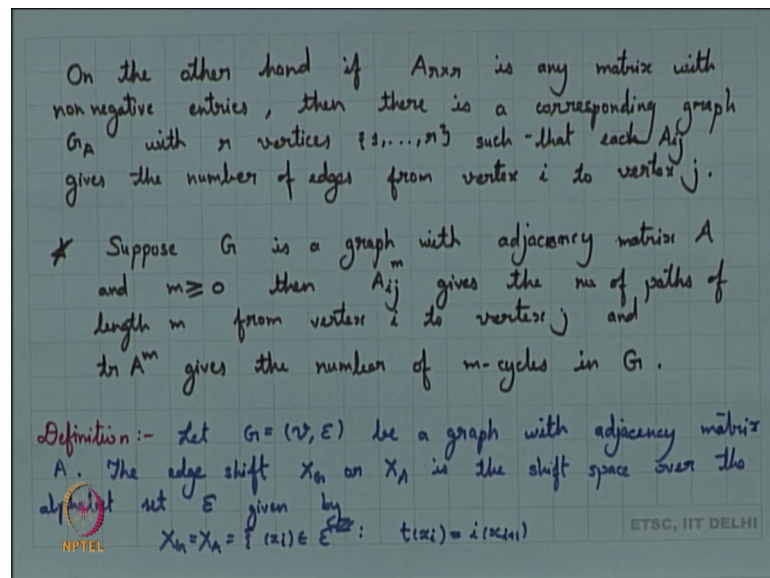 On the other hand if A_{n×n} is any matrix with
non negative entries, then there is a corresponding graph
G_A with n vertices {1,...,n} such that each A_{ij}
gives the number of edges from vertex i to vertex j.
* Suppose G is a graph with adjacency matrix A
and m ≥ 0 then A^m_{ij} gives the no of paths of
length m from vertex i to vertex j and
tr A^m gives the number of m-cycles in G.
Definition:- Let G = (V, E) be a graph with adjacency matrix
A. The edge shift X_G or X_A is the shift space over the
alphabet set E given by
X_G = X_A = { (x_i) ∈ E^ℤ : t(x_i) = i(x_{i+1})
NPTEL
ETSC, IIT DELHI